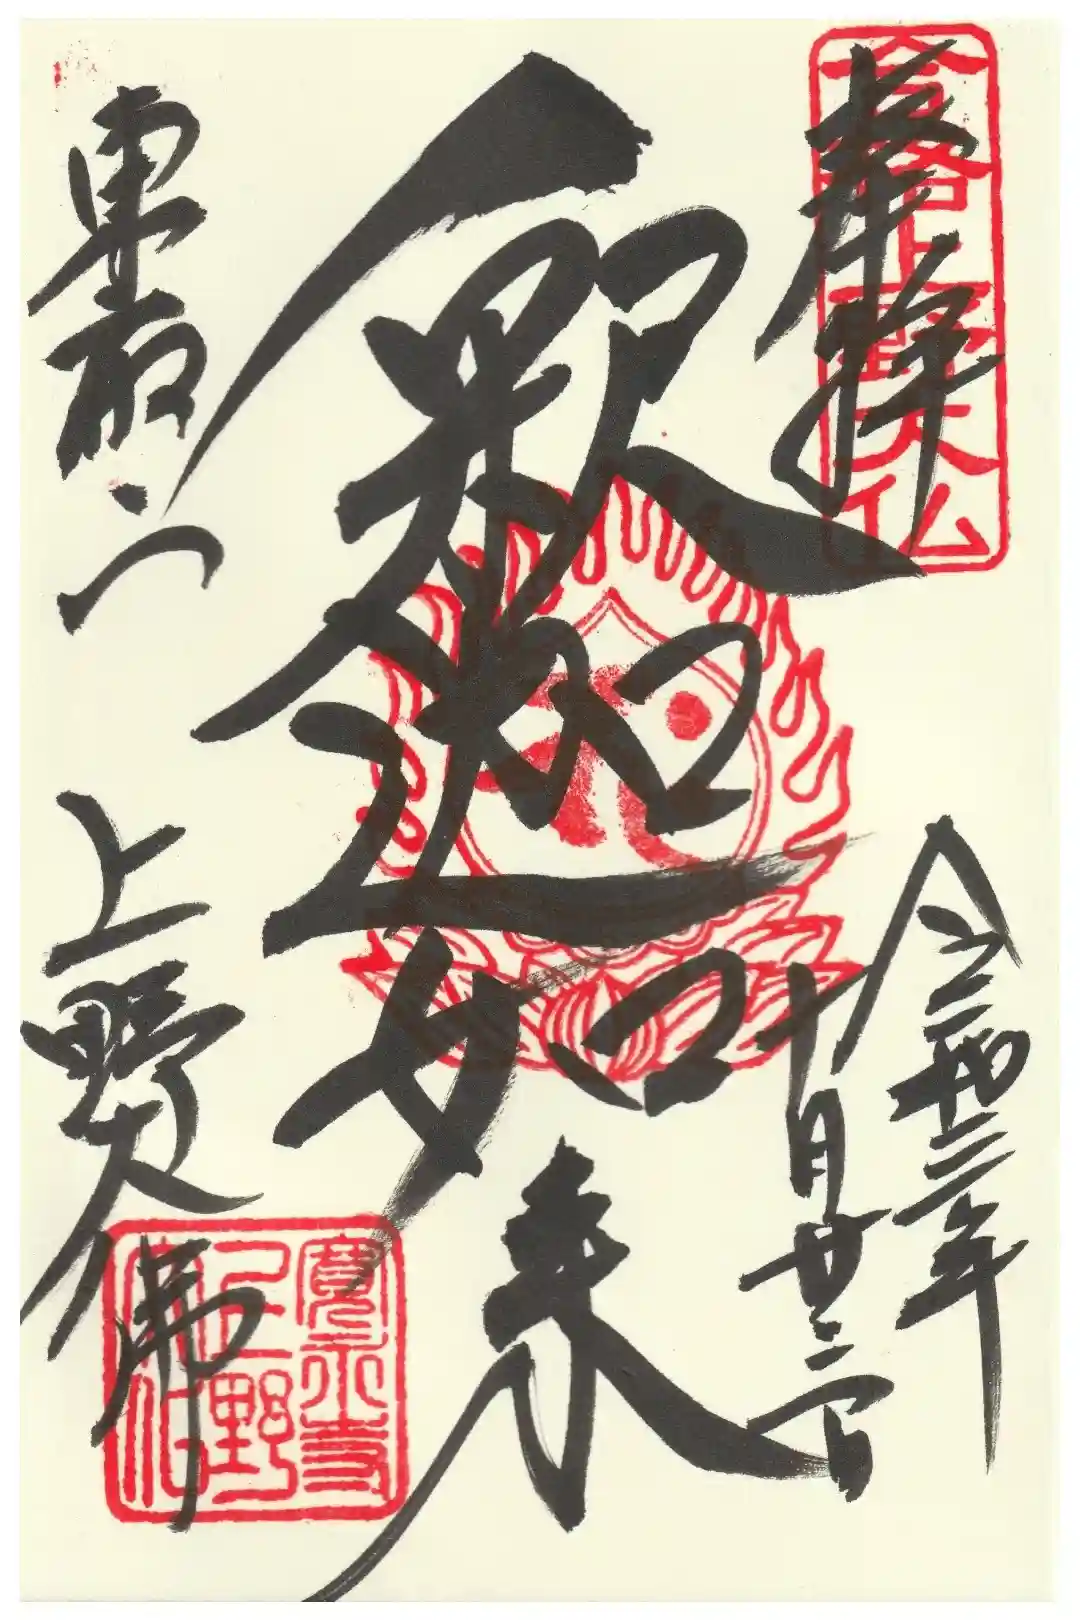 奉拝
合格上野大仏
令和三年
十月廿三日
釈迦如来
東叡山
上野大佛
寛永寺
上野
大仏